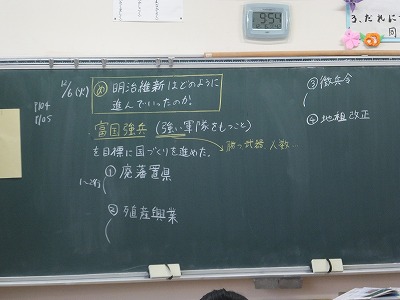 9:54
3、だれに
12/6(火)
め 明治維新はどのように
進んでいったのか。
富国強兵(強い軍隊をもつこと)
を目標に国づくりを進めた。
勝つ武器 人数…
① 廃藩置県
② 殖産興業
③ 徴兵令
④ 地租改正